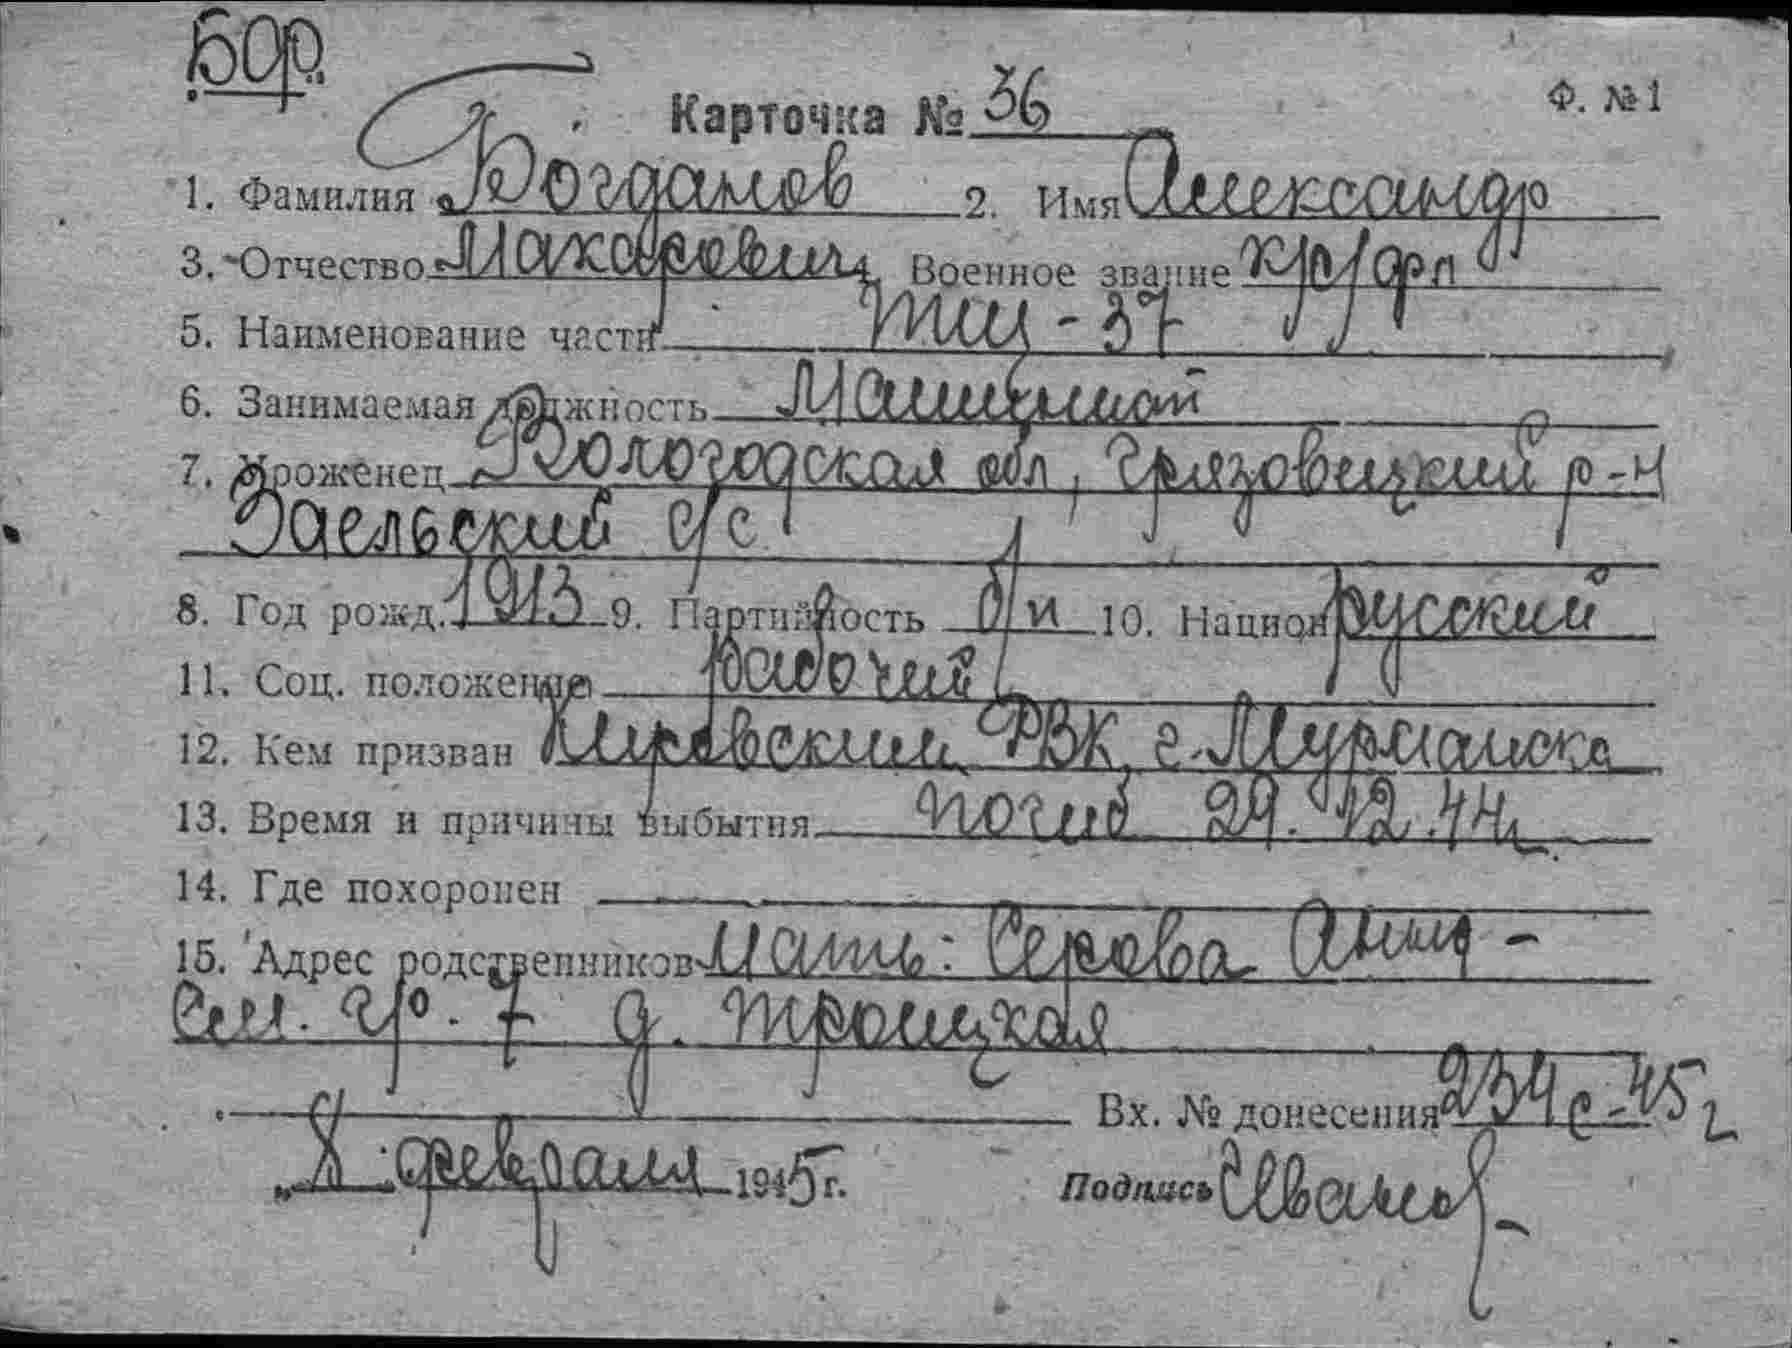 Бар.
Карточка № 36
Ф. № 1
1. Фамилия Богданов 2. Имя Александр
3. Отчество Макарович Военное звание кр/фл
5. Наименование части ТЩ-37
6. Занимаемая должность Машинист
7. Уроженец Вологодская обл, Грязовецкий р-н
Заельский с/с
8. Год рожд. 1913 9. Партийность б/п 10. Национ русский
11. Соц. положение рабочий
12. Кем призван Кировским РВК, г. Мурманска
13. Время и причины выбытия погиб 29.12.44г
14. Где похоронен
15. Адрес родственников Мать: Серова Анна -
д. Троицкая
Вх. № донесения 234с-45г
„8" февраля 1945 г. Подпись Иванов